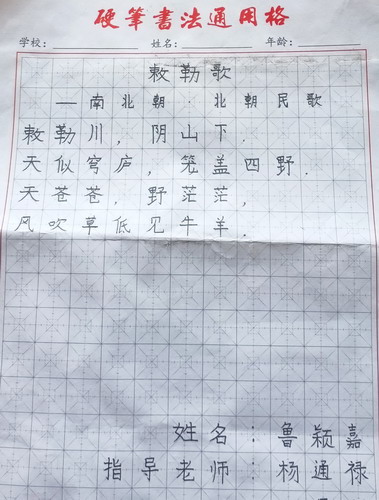 硬筆書法通用格
学校: 姓名: 年龄:
敕勒歌
—南北朝·北朝民歌
敕勒川，阴山下.
天似穹庐，笼盖四野.
天苍苍，野茫茫，
风吹草低见牛羊.
姓名：鲁颖嘉
指导老师：杨通禄